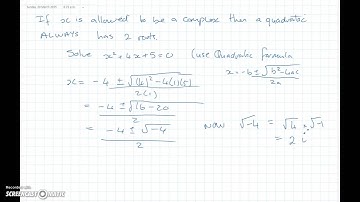 If x is allowed to be a complex then a quadratic
ALWAYS has 2 roots.
Solve x² + 4x + 5 = 0 (use Quadratic formula
x = -b ± √b² - 4ac / 2a
x = -4 ± √(4)² - 4(1)(5) / 2(1)
= -4 ± √16 - 20 / 2
= -4 ± √-4 / 2
NOW √-4 = √4 × √-1
= 2 i
Recorded with
SCREENCAST-O-MATIC